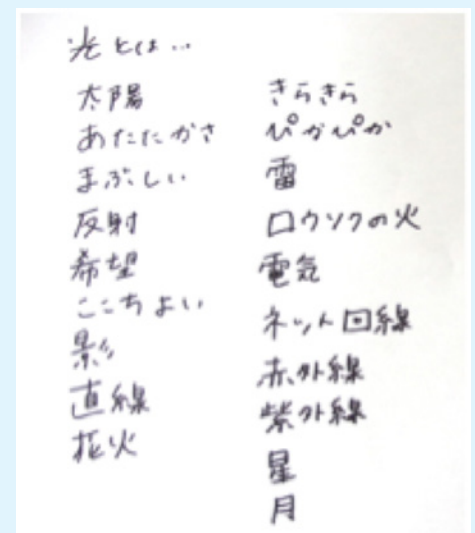 光とは…
太陽
あたたかさ
まぶしい
反射
希望
ここちよい
影
直線
花火
きらきら
ぴかぴか
雷
ロウソクの火
電気
ネット回線
赤外線
紫外線
星
月